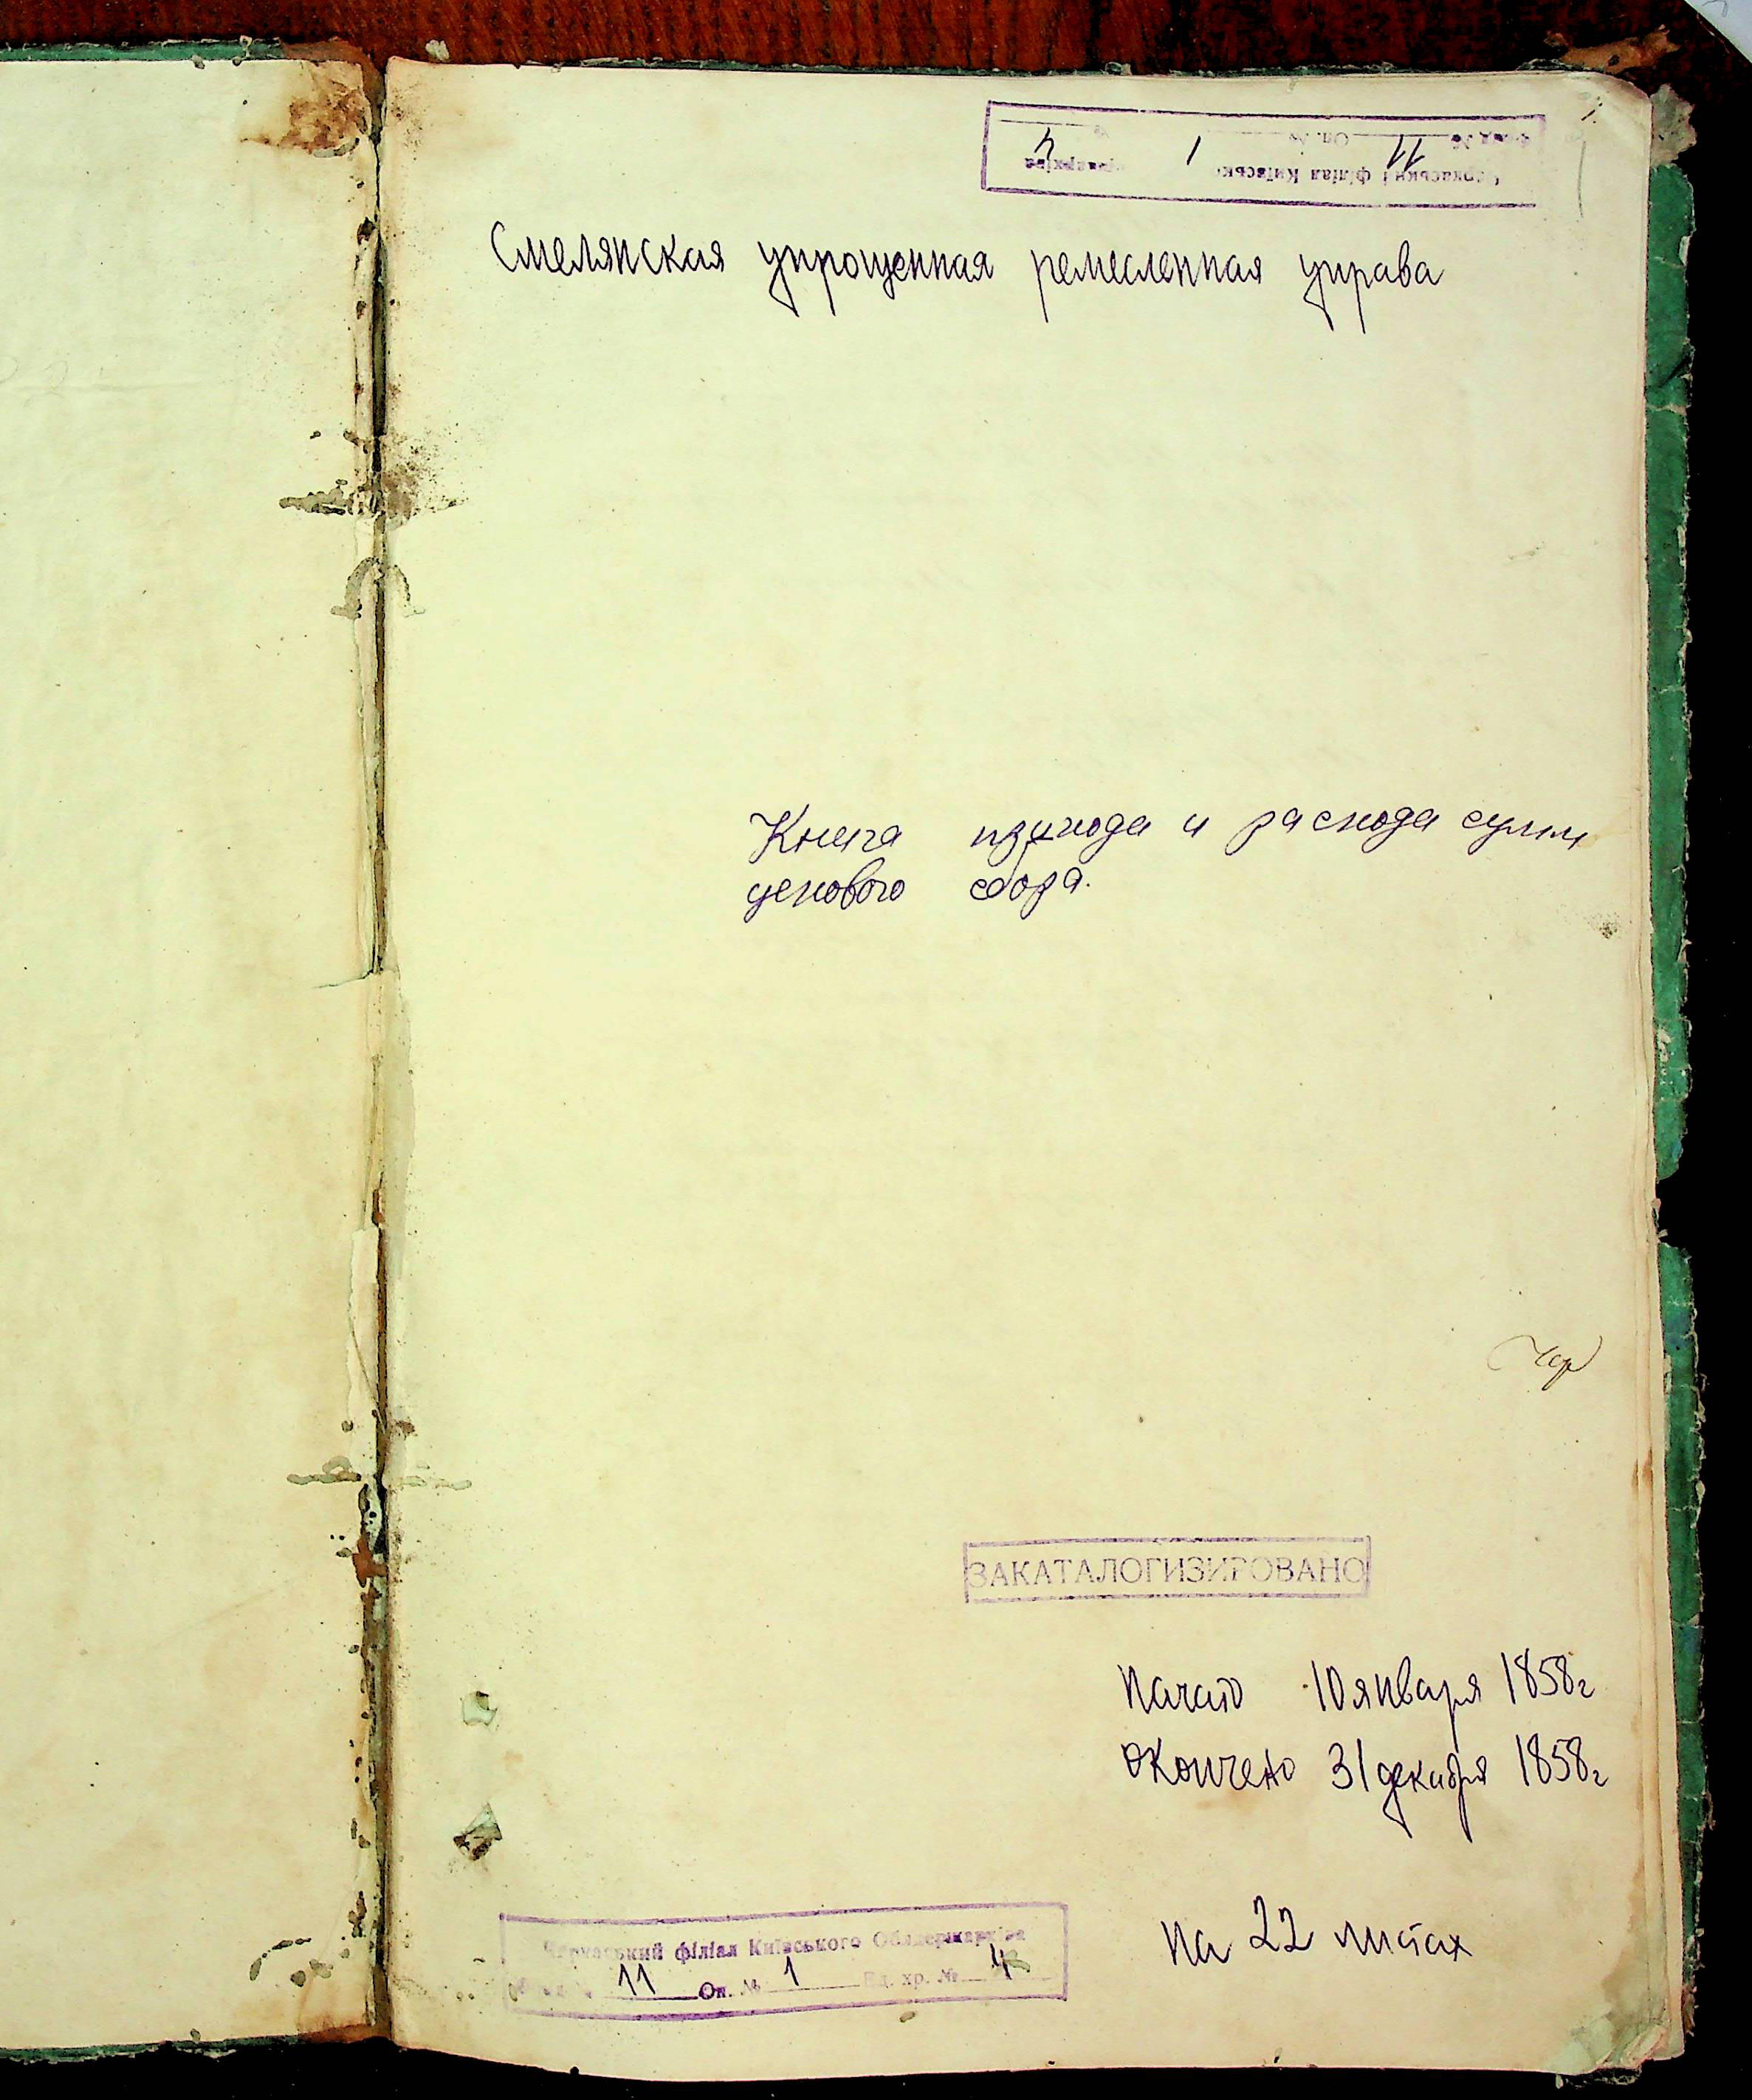 1.
Черкаський філіал Київсько
Фонд № 11 Оп. № 1 4
Смелянская упрощенная ремесленная управа
Книга прихода и расхода сумм
цехового сбора.
ЗАКАТАЛОГИЗИРОВАНО
Начато 10 января 1858г
Окончено 31 декабря 1858г
На 22 листах
Черкаський філіал Київського Облдержархіва
11 Оп. № 1 Ед. хр. № 4